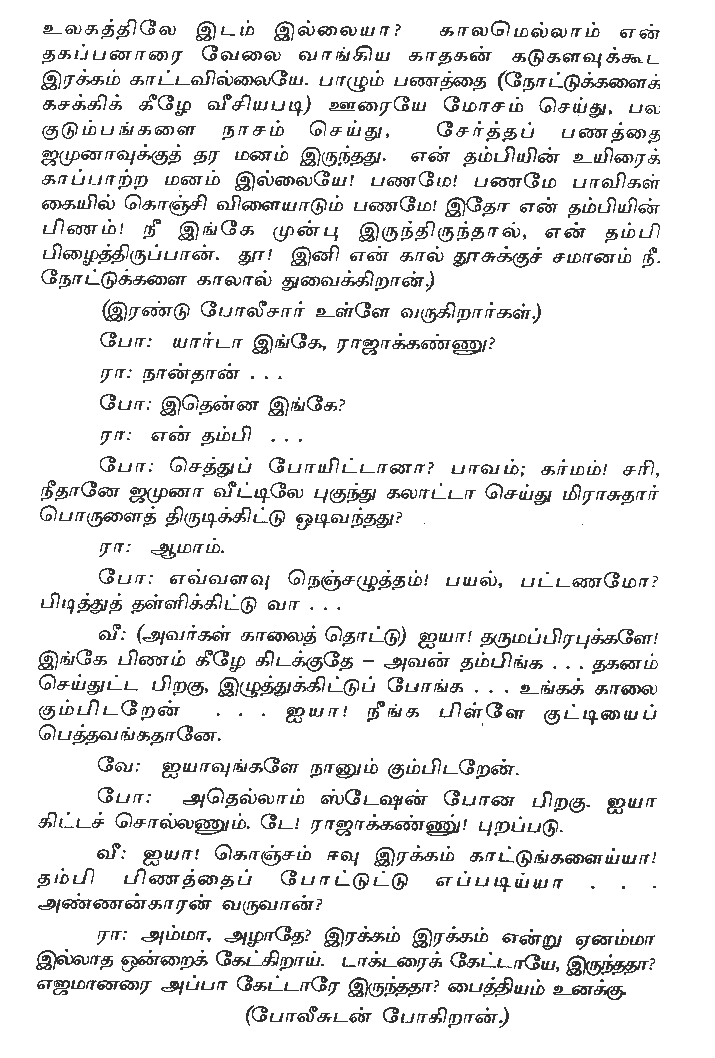 உலகத்திலே இடம் இல்லையா? காலமெல்லாம் என்
தகப்பனாரை வேலை வாங்கிய காதகன் கடுகளவுக்கூட
இரக்கம் காட்டவில்லையே. பாழும் பணத்தை (நோட்டுக்களைக்
கசக்கிக் கீழே வீசியபடி) ஊரையே மோசம் செய்து, பல
குடும்பங்களை நாசம் செய்து, சேர்த்தப் பணத்தை
ஜமுனாவுக்குத் தர மனம் இருந்தது. என் தம்பியின் உயிரைக்
காப்பாற்ற மனம் இல்லையே! பணமே! பணமே பாவிகள்
கையில் கொஞ்சி விளையாடும் பணமே! இதோ என் தம்பியின்
பிணம்! நீ இங்கே முன்பு இருந்திருந்தால், என் தம்பி
பிழைத்திருப்பான். தூ! இனி என் கால் தூசுக்குச் சமானம் நீ.
நோட்டுக்களை காலால் துவைக்கிறான்.)
(இரண்டு போலீசார் உள்ளே வருகிறார்கள்.)
போ: யார்டா இங்கே, ராஜாக்கண்ணு?
ரா: நான்தான் . . .
போ: இதென்ன இங்கே?
ரா: என் தம்பி . . .
போ: செத்துப் போயிட்டானா? பாவம்; கர்மம்! சரி,
நீதானே ஜமுனா வீட்டிலே புகுந்து கலாட்டா செய்து மிராசுதார்
பொருளைத் திருடிக்கிட்டு ஒடிவந்தது?
ரா: ஆமாம்.
போ: எவ்வளவு நெஞ்சழுத்தம்! பயல், பட்டணமோ?
பிடித்துத் தள்ளிக்கிட்டு வா . . .
வீ: (அவர்கள் காலைத் தொட்டு) ஐயா! தருமப்பிரபுக்களே!
இங்கே பிணம் கீழே கிடக்குதே – அவன் தம்பிங்க . . . தகனம்
செய்துட்ட பிறகு, இழுத்துக்கிட்டுப் போங்க . . . உங்கக் காலை
கும்பிடறேன் . . . ஐயா! நீங்க பிள்ளே குட்டியைப்
பெத்தவங்கதானே.
வே: ஐயாவுங்களே நானும் கும்பிடறேன்.
போ: அதெல்லாம் ஸ்டேஷன் போன பிறகு. ஐயா
கிட்டச் சொல்லணும். டே! ராஜாக்கண்ணு! புறப்படு.
வீ: ஐயா! கொஞ்சம் ஈவு இரக்கம் காட்டுங்களைய்யா!
தம்பி பிணத்தைப் போட்டுட்டு எப்படிய்யா . . .
அண்ணன்காரன் வருவான்?
ரா: அம்மா, அழாதே? இரக்கம் இரக்கம் என்று ஏனம்மா
இல்லாத ஒன்றைக் கேட்கிறாய். டாக்டரைக் கேட்டாயே, இருந்ததா?
எஜமானரை அப்பா கேட்டாரே இருந்ததா? பைத்தியம் உனக்கு.
(போலீசுடன் போகிறான்.)